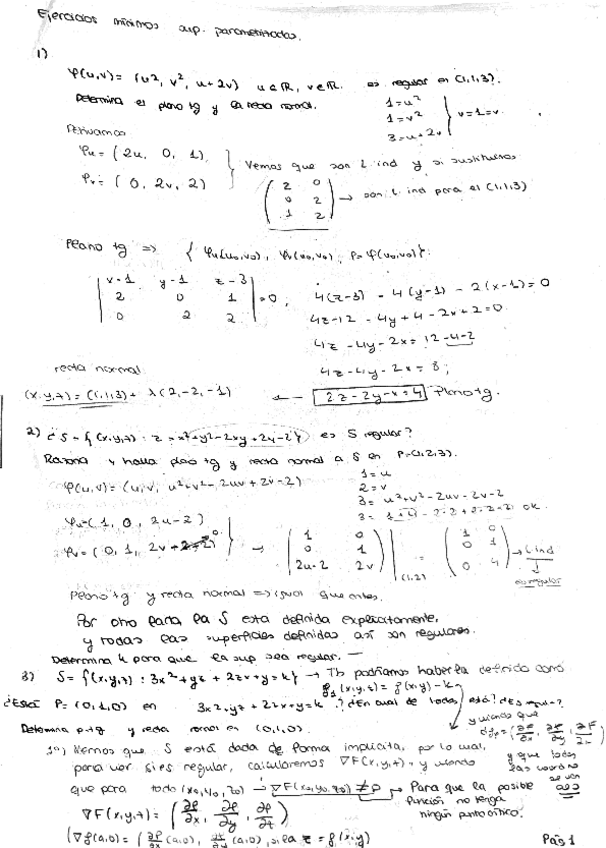 Ejercicios mínimos sup. parametrizadas.
1)
φ(u,v) = (u², v², u+2v) u∈ℝ, v∈ℝ. es regular en (1,1,3)?
Determina el plano tg y la recta normal.
1=u²
1=v²
3=u+2v
} v=1=v.
Derivamos
φu = (2u, 0, 1)
φv = (0, 2v, 2)
} Vemos que son l. ind y si sustituimos
(2 0
0 2
1 2) → son l. ind para el (1,1,3)
Plano tg => { φu(u0,v0), φv(u0,v0), P=φ(u0,v0)}.
|x-1 y-1 z-3|
|2 0 1| = 0,
|0 2 2|
4(z-3) - 4(y-1) - 2(x-1)=0
4z-12 - 4y + 4 - 2x + 2 = 0
4z - 4y - 2x = 12-4-2
4z - 4y - 2x = 8;
recta normal
(x,y,z) = (1,1,3) + λ(2,-2,-1) ← 2z-2y-x=4 Plano tg.
2) ¿S={(x,y,z) : z=x²+y²-2xy+2y-2} es S regular?
Razona y halla plano tg y recta normal a S en P=(1,2,3).
φ(u,v) = (u,v, u²+v²-2uv+2v-2)
1=u
2=v
3=u²+v²-2uv-2v-2
ok.
φu=(1, 0, 2u-2)
φv=(0, 1, 2v
} →
(1 0
0 1
2u-2 2v)|(1,2) =
(1 0
0 1
0 4) → l ind
↓
es regular
Plano tg y recta normal => igual que antes.
Por otro lado la S está definida explícitamente,
y todas las superficies definidas así son regulares.
Determina k para que la sup sea regular.
3) S={(x,y,z) : 3x²+yz+2zx+y=k} → Tb podríamos haberla definido como
(x,y,z) = f(x,y)-k
¿Está P=(0,1,0) en 3x²+yz+2zx+y=k? ¿En cual de todas está? ¿Es regular?
Determina p.tg y recta normal en (0,1,0).
y viendo que
(∂F/∂x, ∂F/∂y, ∂F/∂z)
1º) Vemos que S está dada de forma implícita, por lo cual,
para ver si es regular, calcularemos ∇F(x,y,z), y viendo
que para todo (x0,y0,z0) → ∇F(x0,y0,z0) ≠ 0
→ Para que la posible
función no tenga
ningún punto crítico.
∇F(x,y,z) = (∂f/∂x, ∂f/∂y, ∂f/∂z)
(∇f(a,0) = (∂f/∂x (a,0), (a,0), si la z = f(x,y)
Pág 1